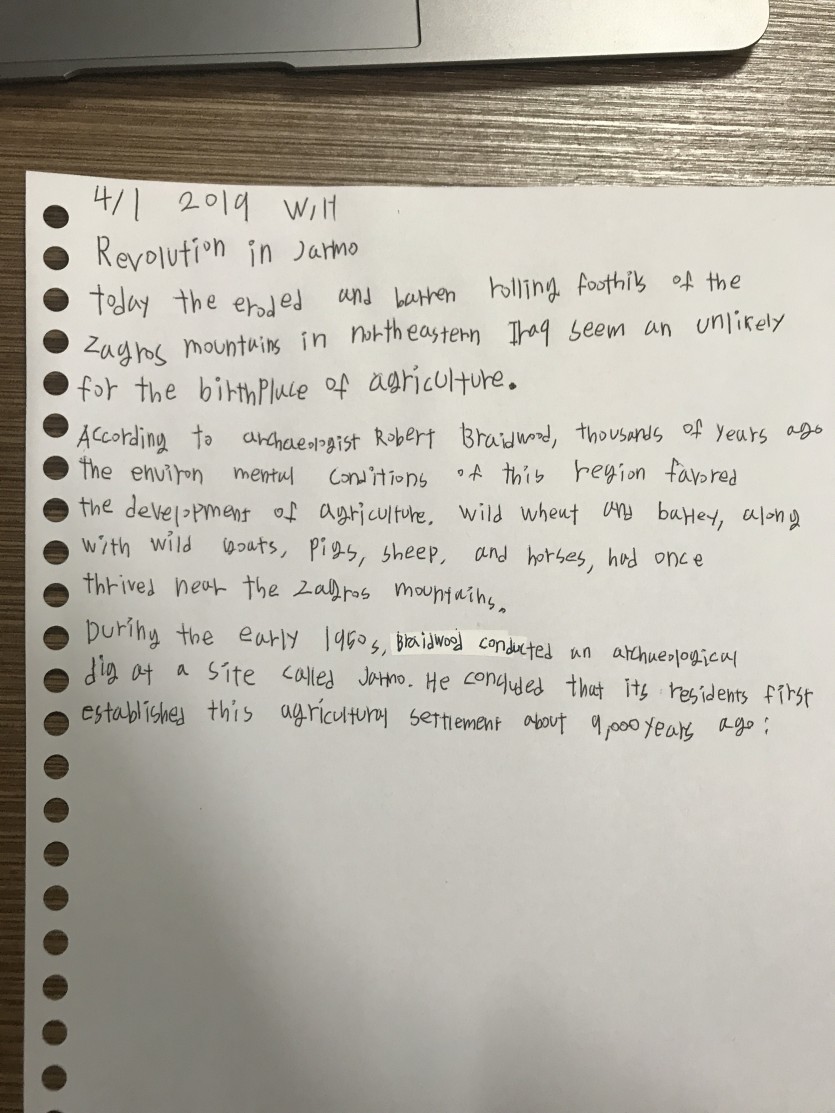 4/1 2019 Will
Revolution in Jarmo
today the eroded and barren rolling foothils of the
Zagros mountains in northeastern Iraq seem an unlikely
for the birthpluce of agriculture.
According to archaeologist Robert Braidwood, thousands of years ago
the environ mental conditions of this region favored
the development of agriculture. wild wheat and barley, along
with wild goats, pigs, sheep, and horses, had once
thrived near the Zagros mountains.
During the early 1950s, Braidwood conducted an archaeological
dig at a site called Jarmo. He concluded that its residents first
established this agricultural settlement about 9,000 years ago: